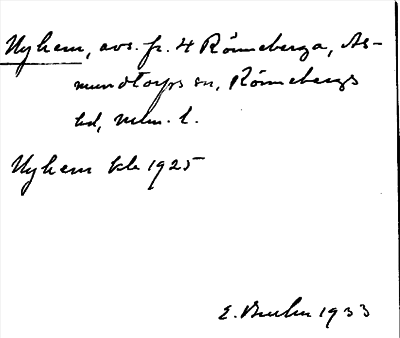 Nyhem, avs. fr. 4 Rönneberga, As-
mundtorps sn, Rönnebergs
hd, Mlm. l.
Nyhem kla 1925
E. 1933